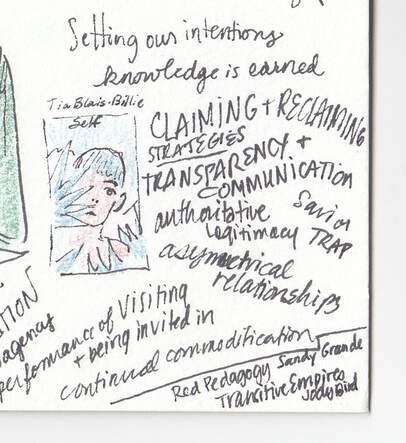 Setting our intentions
knowledge is earned
Tia Blais-Billie
Self
CLAIMING + RECLAIMING
STRATEGIES
TRANSPARENCY +
COMMUNICATION
authoritative
legitimacy
Savior
TRAP
asymetrical
relationships
agency
performance of visiting
+ being invited in
continual commodification
Red Pedagogy Sandy Grande
Transitive Empires
Jody Bird